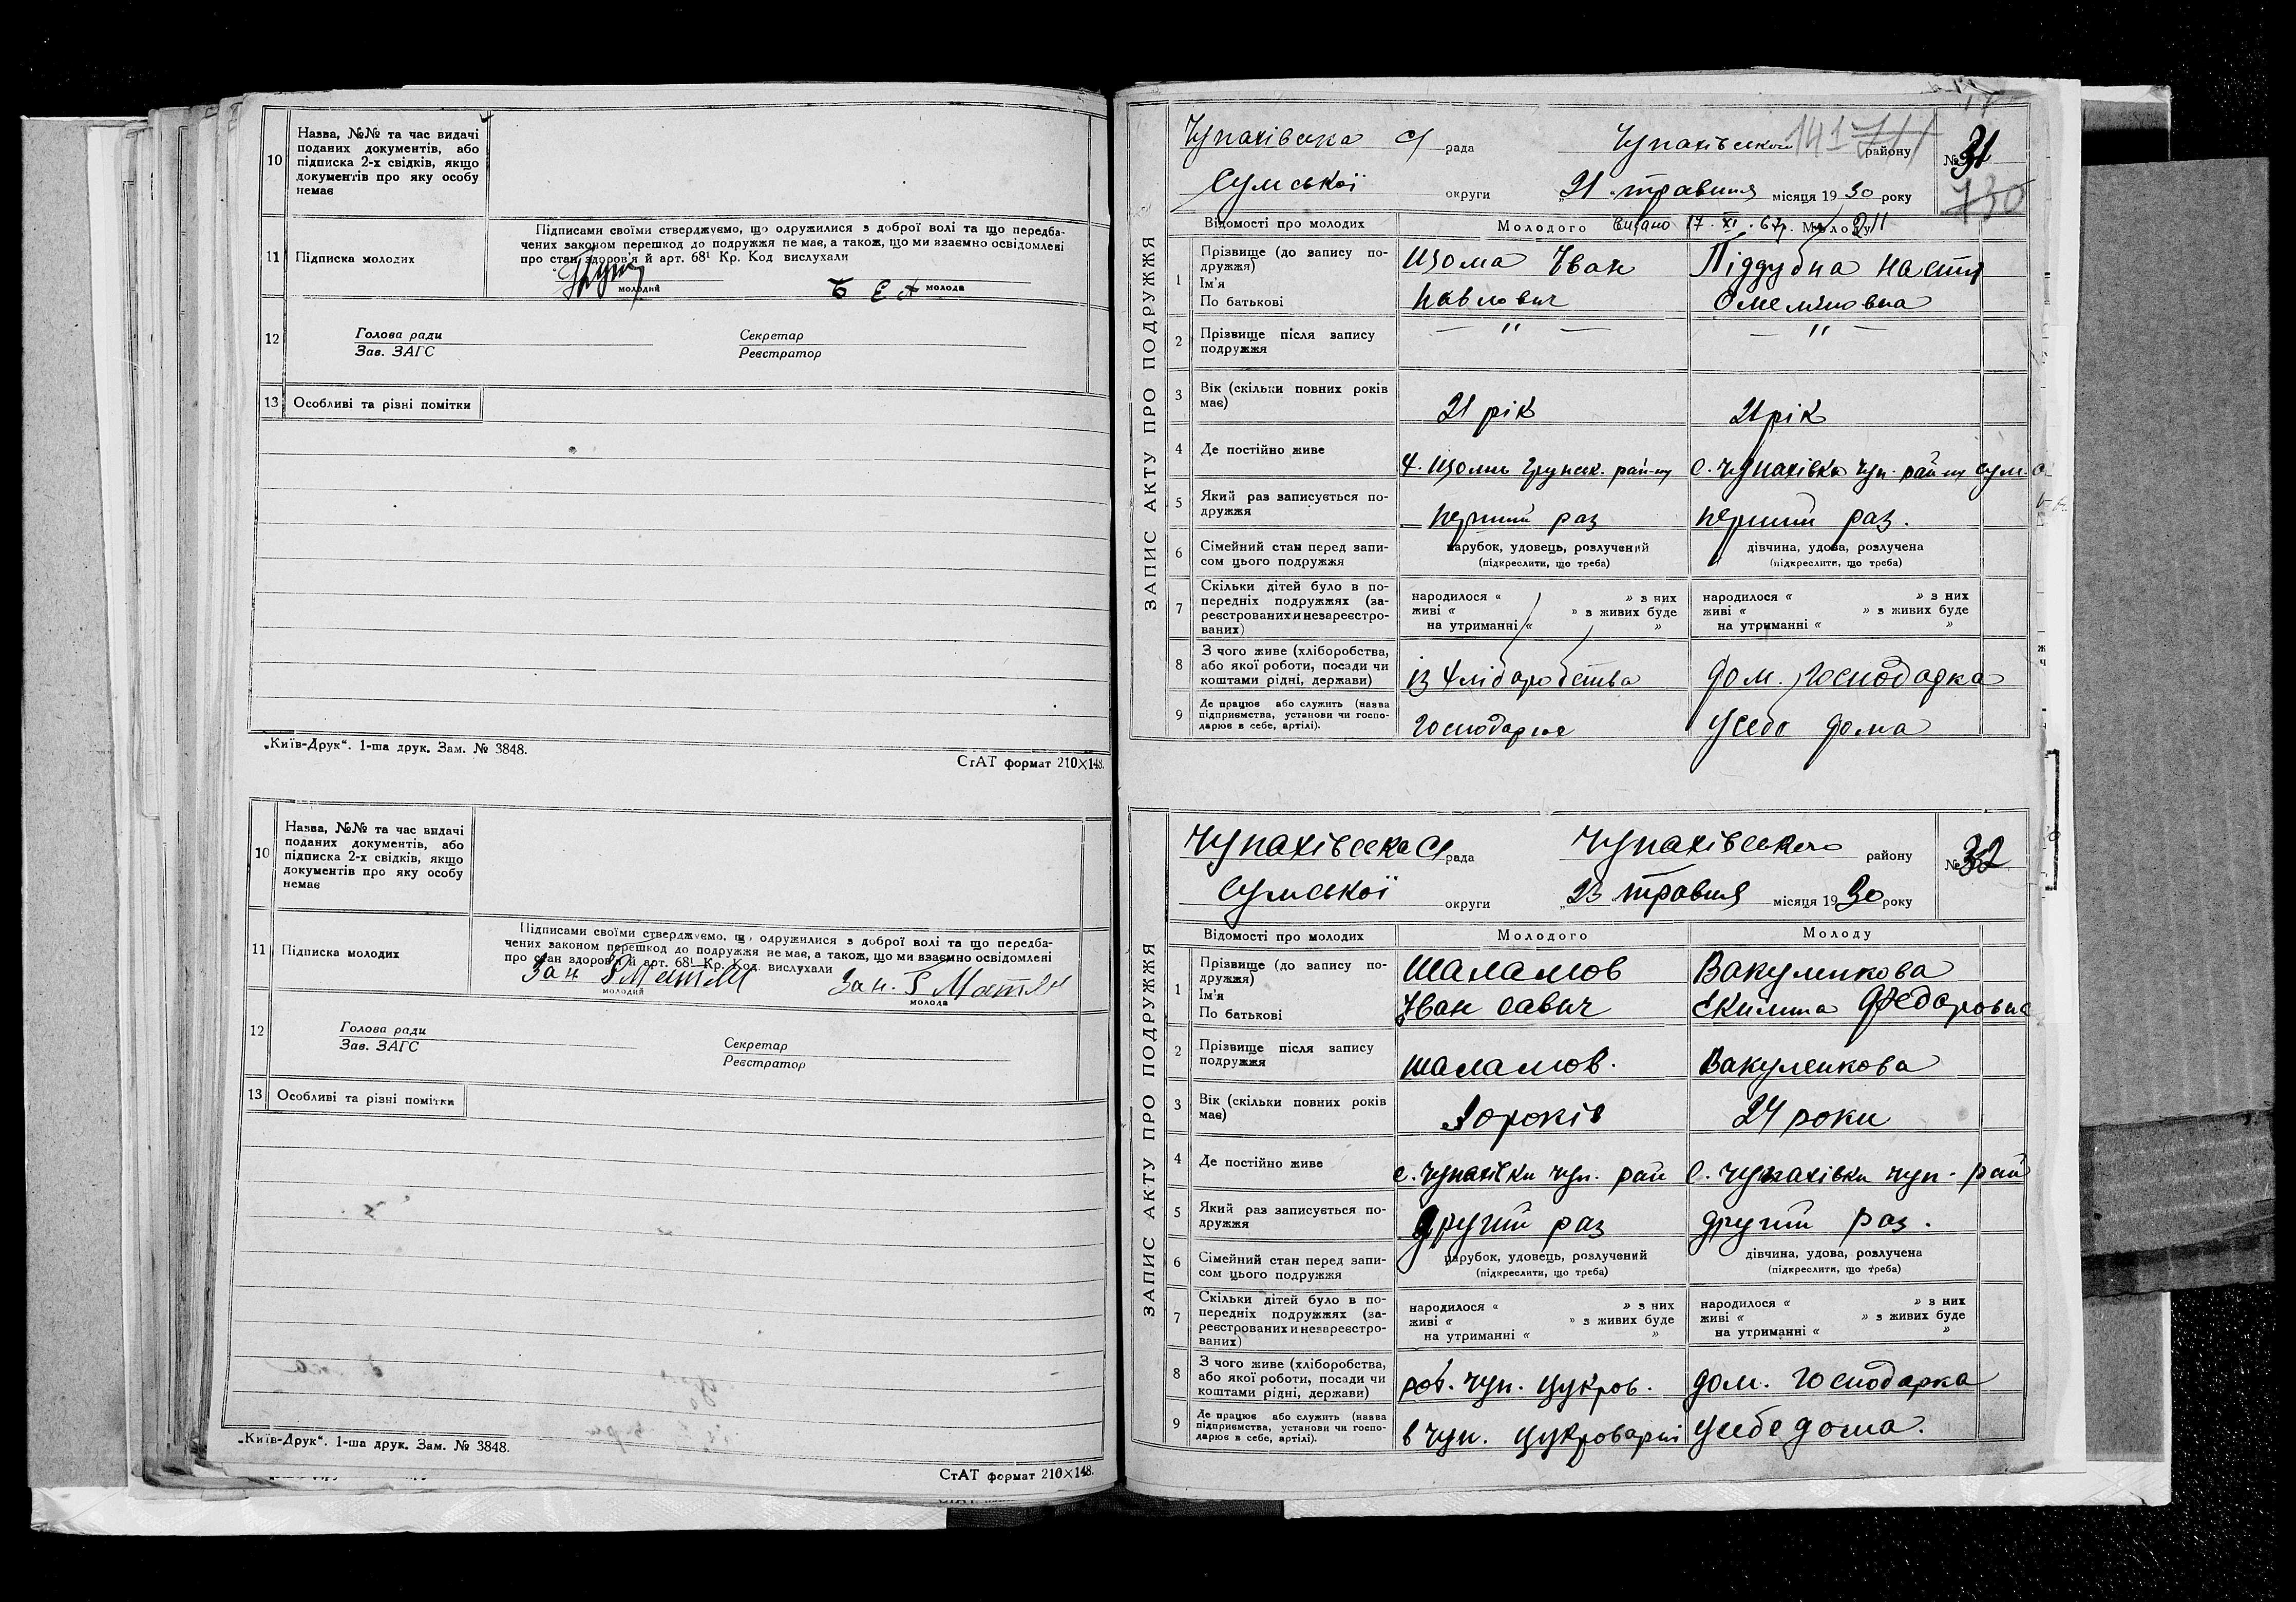 10
Назва, №№ та час видачі
поданих документів, або
підписка 2-х свідків, якщо
документів про яку особу
немає
11
Підписка молодих
Підписами своїми стверджуємо, що одружилися з доброї волі та що передба-
чених законом перешкод до подружжя не має, а також, що ми взаємно освідомлені
про стан здоров'я й арт. 68¹ Кр. Код вислухали
молодий
молода
12
Голова ради
Зав. ЗАГС
Секретар
Реєстратор
13
Особливі та різні помітки
„Київ-Друк“. 1-ша друк. Зам. № 3848.
СтАТ формат 210×148.
10
Назва, №№ та час видачі
поданих документів, або
підписка 2-х свідків, якщо
документів про яку особу
немає
11
Підписка молодих
Підписами своїми стверджуємо, що одружилися з доброї волі та що передба-
чених законом перешкод до подружжя не має, а також, що ми взаємно освідомлені
про стан здоров'я й арт. 68¹ Кр. Код вислухали
молодий
молода
12
Голова ради
Зав. ЗАГС
Секретар
Реєстратор
13
Особливі та різні помітки
„Київ-Друк“. 1-ша друк. Зам. № 3848.
СтАТ формат 210×148.
ЗАПИС АКТУ ПРО ПОДРУЖЖЯ
Чупахівська с/рада Чупахівського району № 31
141 711
Сумської округи „21 травня місяця 1930 року
730
Відомості про молодих Молодого Молоду
Видано 17.XI.67р.
1
Прізвище (до запису по-
дружжя)
Ім'я
По батькові
Щома Іван
Павлович
Піддубна Настя
Омеляновна
2
Прізвище після запису
подружжя
— " —
— " —
3
Вік (скільки повних років
має)
21 рік
21 рік
4
Де постійно живе
с. Чупахівка Чуп. рай-ну Сум. о
5
Який раз записується по-
дружжя
перший раз
перший раз.
6
Сімейний стан перед запи-
сом цього подружжя
парубок, удовець, розлучений
(підкреслити, що треба)
дівчина, удова, розлучена
(підкреслити, що треба)
7
Скільки дітей було в по-
передніх подружжях (за-
реєстрованих и незареєстро-
ваних)
народилося « » з них
живі « » з живих буде
на утриманні « »
народилося « » з них
живі « » з живих буде
на утриманні « »
8
З чого живе (хліборобства,
або якої роботи, посади чи
коштами рідні, держави)
із хліборобства
дом. господарка
9
Де працює або служить (назва
підприємства, установи чи госпо-
дарює в себе, артілі).
господарює
у себе дома
ЗАПИС АКТУ ПРО ПОДРУЖЖЯ
Чупахівська с/рада Чупахівського району № 32
Сумської округи „23 травня місяця 1930 року
Відомості про молодих Молодого Молоду
1
Прізвище (до запису по-
дружжя)
Ім'я
По батькові
Шаламов
Іван Савич
Вакуленкова
Єкилина Федоровна
2
Прізвище після запису
подружжя
Шаламов.
Вакуленкова
3
Вік (скільки повних років
має)
30 років
24 роки
4
Де постійно живе
с. Чупахівки Чуп. рай
с. Чупахівки Чуп. рай
5
Який раз записується по-
дружжя
другий раз
другий раз.
6
Сімейний стан перед запи-
сом цього подружжя
парубок, удовець, розлучений
(підкреслити, що треба)
дівчина, удова, розлучена
(підкреслити, що треба)
7
Скільки дітей було в по-
передніх подружжях (за-
реєстрованих и незареєстро-
ваних)
народилося « » з них
живі « » з живих буде
на утриманні « »
народилося « » з них
живі « » з живих буде
на утриманні « »
8
З чого живе (хліборобства,
або якої роботи, посади чи
коштами рідні, держави)
роб. Чуп. цукров.
дом. господарка
9
Де працює або служить (назва
підприємства, установи чи госпо-
дарює в себе, артілі).
в Чуп. цукроварні
у себе дома.